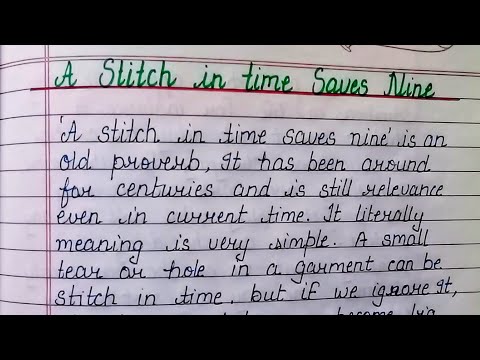 A Stitch in time Saves Nine
'A stitch in time saves nine' is an
old proverb, It has been around
for centuries and is still relevance
even in current time. It literally
meaning is very simple. A small
tear or hole in a garment can be
stitch in time, but if we ignore it,
become big